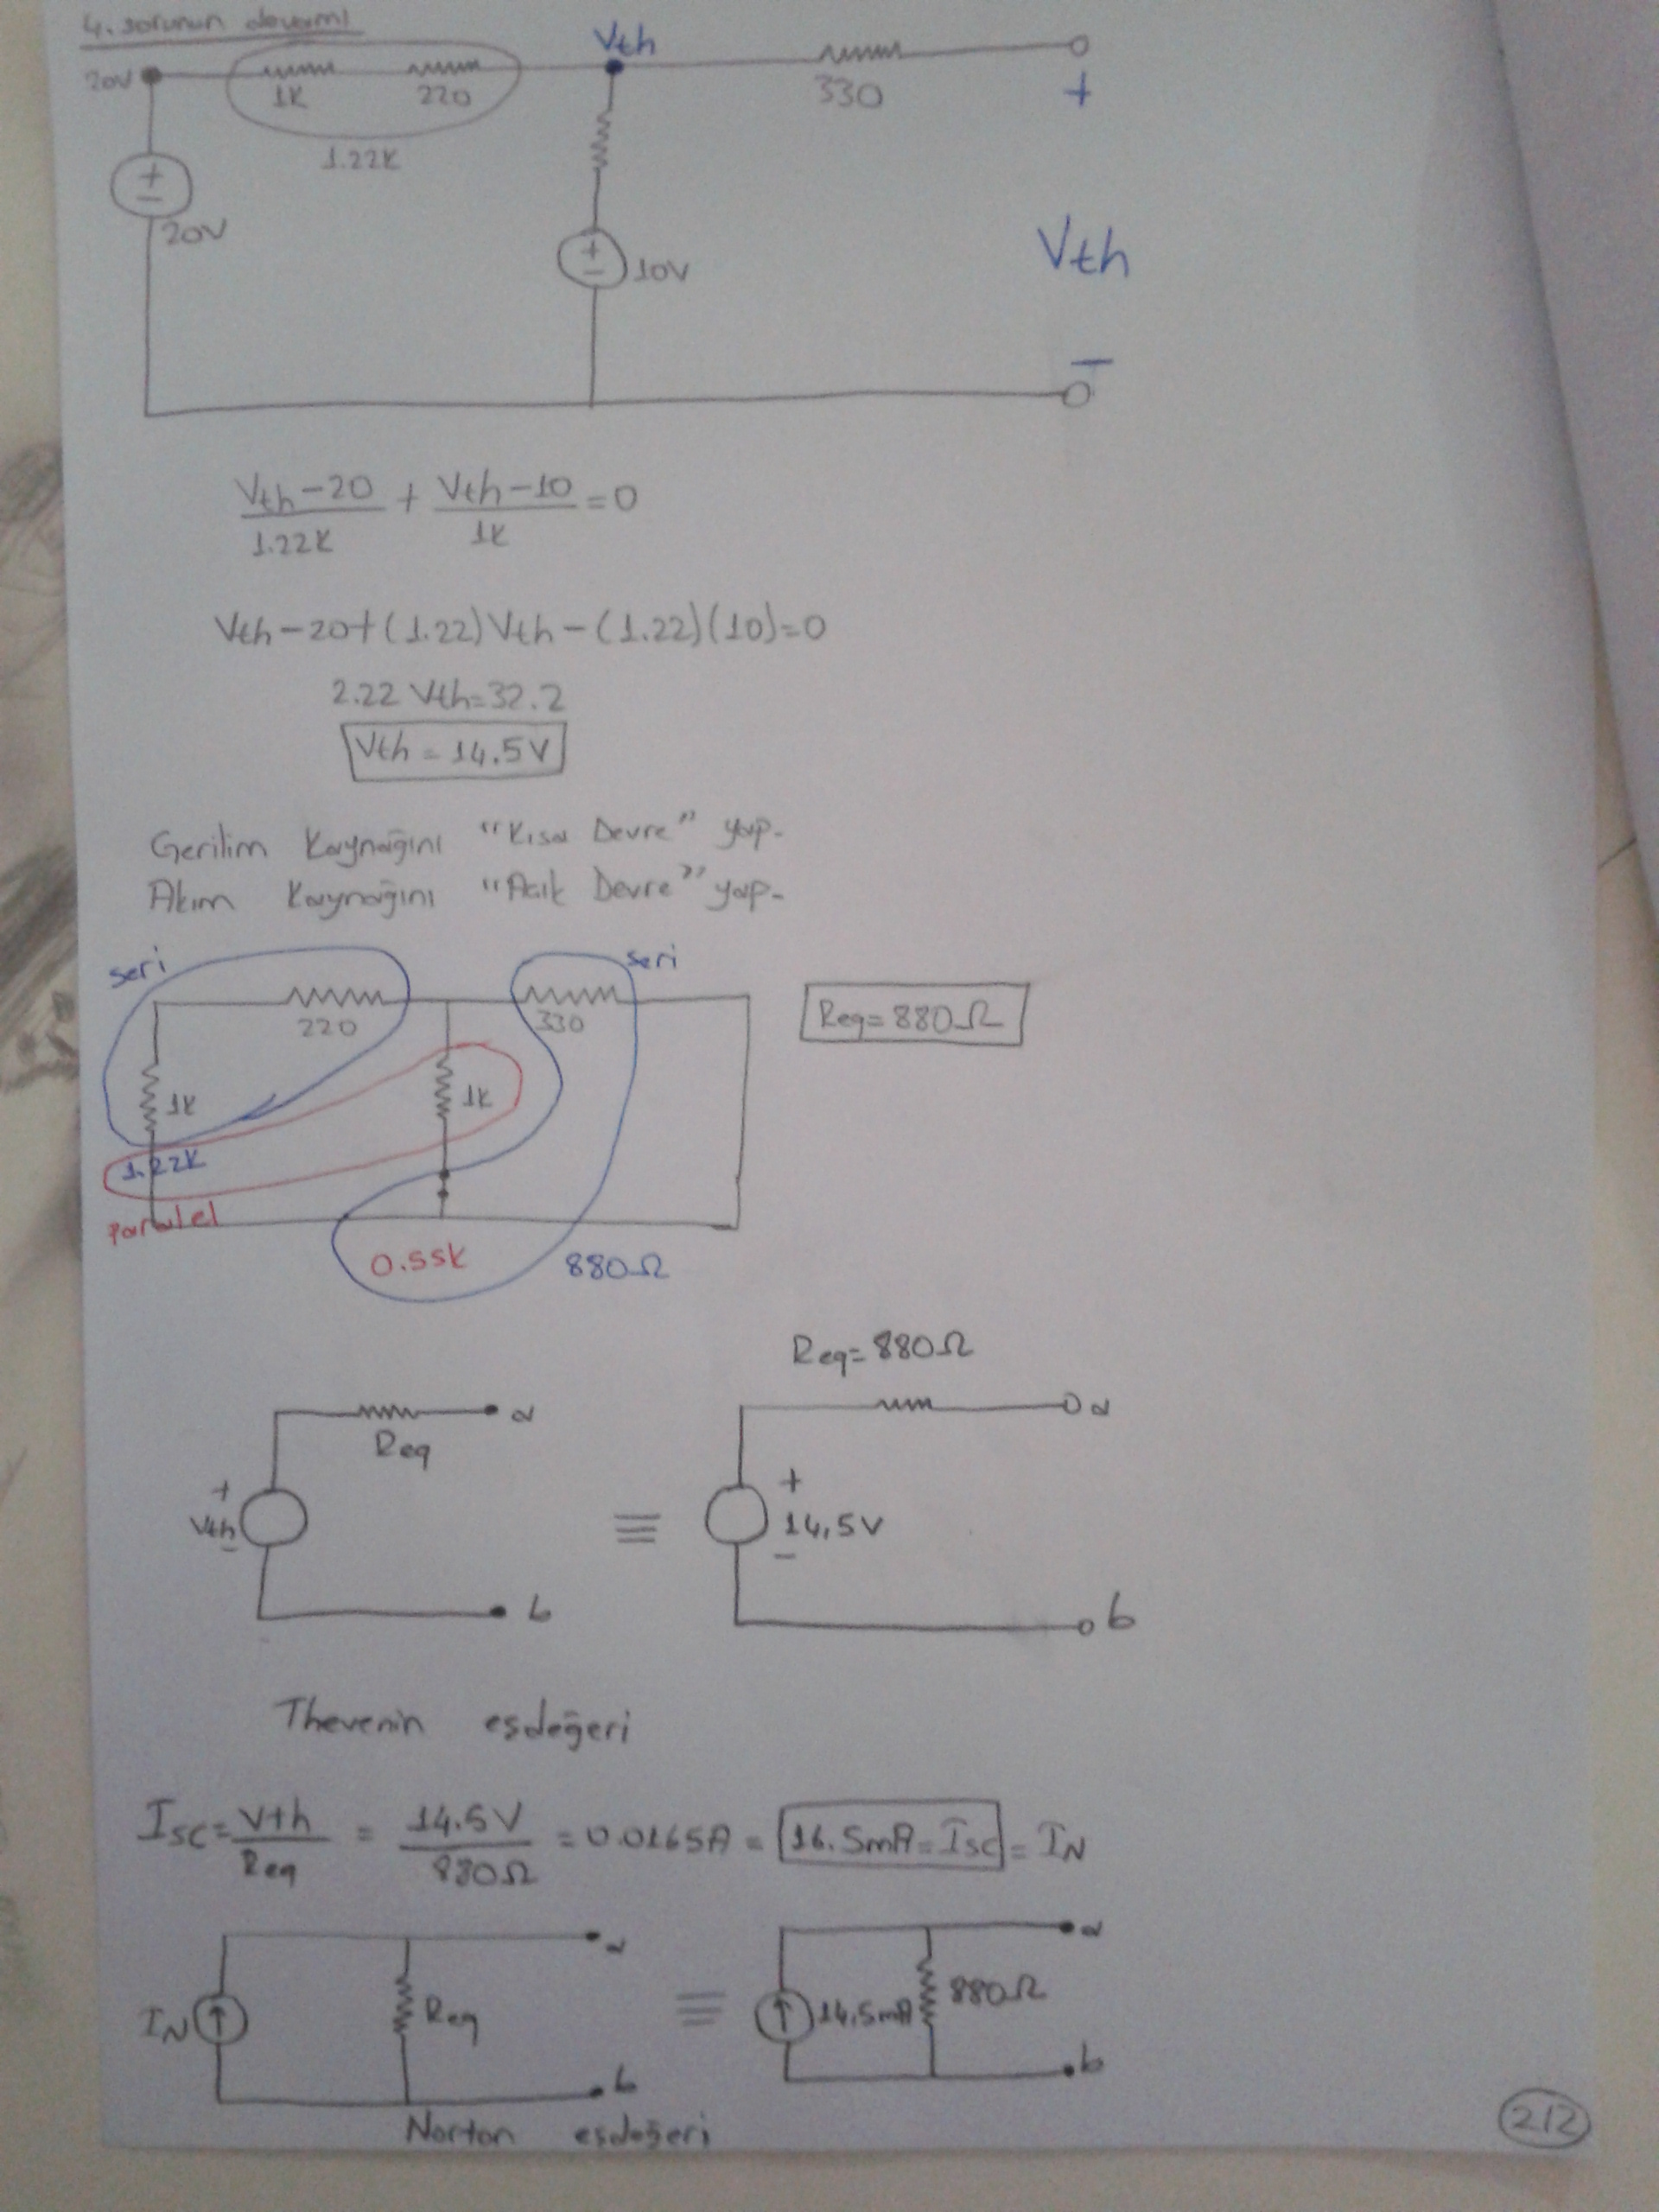 4. sorunun devamı
Vth
20V
1K 220
330
+
1.22K
+
-
20V
+
-
10V
Vth
-
Vth-20/1.22K + Vth-10/1K = 0
Vth-20+(1.22)Vth-(1.22)(10)=0
2.22 Vth=32.2
Vth = 14.5V
Gerilim Kaynağını "Kısa Devre" yap.
Akım Kaynağını "Açık Devre" yap.
seri
seri
220
330
Req=880Ω
1K
1K
1.22K
paralel
0.55K
880Ω
Req=880Ω
a
Req
a
+
Vth
-
≡
+
14,5V
-
b
b
Thevenin eşdeğeri
Isc=Vth/Req = 14.5V/880Ω = 0.0165A = 16.5mA=Isc = IN
a
a
IN
Req
≡
14,5mA
880Ω
b
b
Norton eşdeğeri
2/2